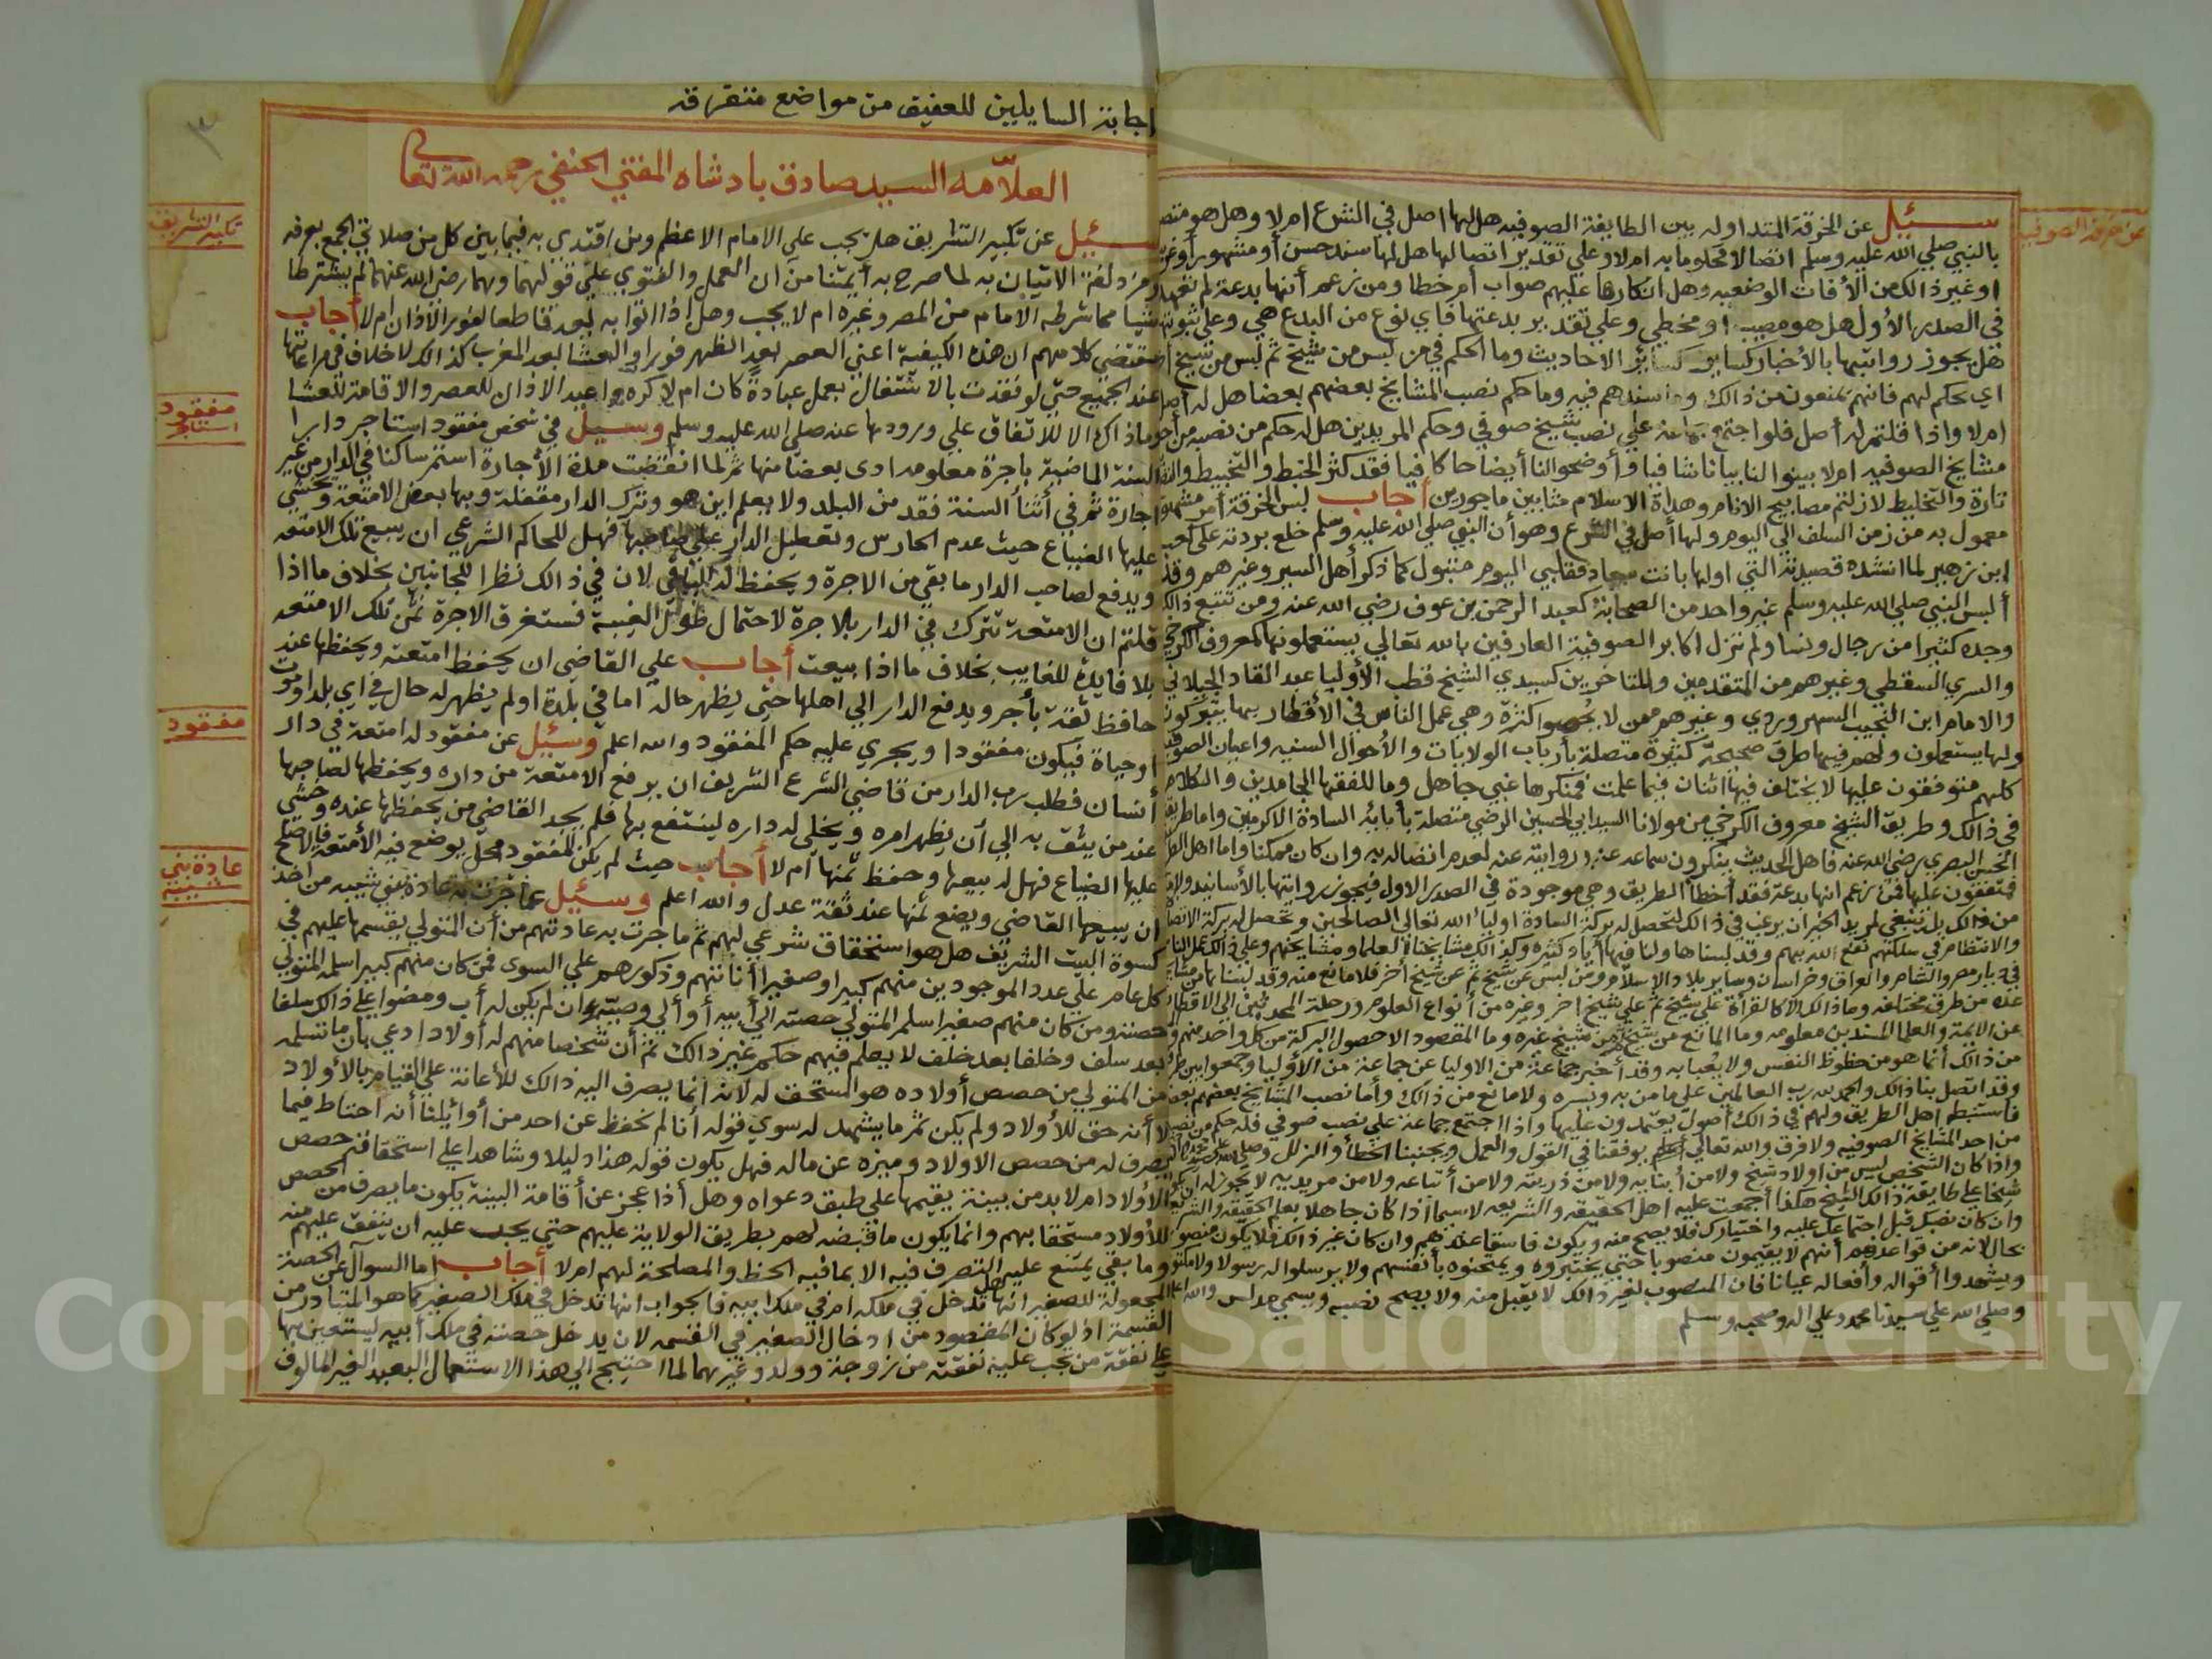 عن خرقة الصوفيه
سئيل عن الخرقة المتداوله بين الطايفة الصوفيه هل لها اصل في الشرع ام لا وهل هو متصل
بالنبي صلي الله عليه وسلم اتصالا محكوما به ام لا وعلي تقدير اتصالها هل لها سند حسن أو مشهور أو غريب
او غير ذالك من الأوقات الوضعيه وهل انكارها عليهم صواب أم خطا ومن زعم أنها بدعة لم تعهد
في الصدر الأول هل هو مصيب أو مخطي وعلي تقدير بدعتها فاي نوع من البدع هي وعلي ثبوتها
هل يجوز روايتها بالأخبار كسابق كسائر الاحاديث وما الحكم في من لبس من شيخ ثم لبس من شيخ
اي حكم لهم فانهم يمنعون من ذالك وما سندهم فيه وما حكم نصب المشايخ بعضهم بعضا هل له أصل
ام لا واذا قلتم له أصل فلو اجتمع جماعة علي نصب شيخ صوفي وحكم المريدين هل له حكم من نصبه من أحد
مشايخ الصوفيه ام لا بينوا لنا بيانا شافيا وأوضحوا لنا أيضاحا كافيا فقد كثر الخبط والتخبيط
تارة والتخليط لازلتم مصابيح الانام وهداة الاسلام مثابين ماجورين أجاب لبس الخرقة أمر مشهور
معمول به من زمن السلف الي اليوم ولها أصل في الشرع وهو أن النبي صلي الله عليه وسلم خلع بردته علي كعب
ابن زهير لما انشده قصيدته التي اولها بانت سعاد فقلبي اليوم متبول كما ذكر أهل السير وغيرهم وقد
ألبس النبي صلي الله عليه وسلم غير واحد من الصحابة كعبد الرحمن بن عوف رضي الله عنه ومن تتبع ذالك
وجده كثيرا من رجال ونسا ولم تزل اكابر الصوفية العارفين بالله تعالي يستعملونها كمعروف الكرخي
والسري السقطي وغيرهم من المتقدمين والمتاخرين كسيدي الشيخ قطب الأوليا عبد القادر الجيلاني
والامام ابن النجيب السهروردي وغيرهم ممن لا يحصوا كثرة وهي عمل الناس في الأقطار بها يتبركون
ولها يستعملون ولهم فيها طرق صحيحة كثيرة متصلة بأرباب الولايات والأحوال السنيه واعيان الصوفيه
كلهم متوفقون عليها لا يختلف فيها اثنان فيما علمت فمنكرها غبي جاهل وما للفقها الجامدين والكلام
في ذالك وطريق الشيخ معروف الكرخي من مولانا السيد ابي الحسين الرضي متصلة بأبايه السادة الاكرمين واما طريق
الحسن البصري رضي الله عنه فاهل الحديث ينكرون سماعه عنه وروايته عنه لعدم اتصاله به وان كان ممكنا واما اهل الطريق
فمتفقون عليها فمن زعم انها بدعة فقد أخطأ الطريق وهي موجودة في الصدر الاول فيجوز روايتها بالأسانيد
من ذالك بل ينبغي لمريد الخير ان يرغب في ذالك لتحصل له بركة السادة اوليا الله تعالى الصالحين وتحصل له بركة الاتصال
والانتظام في سلكهم نفع الله بهم وقد لبسناها ولنا فيها أياد كثيره وكذالك مشايخنا العلما ومشايخهم وعلي ذالك عمل الناس
في ديار مصر والشام والعراق وخراسان وساير بلاد الاسلام ومن لبس عن شيخ ثم عن شيخ أخر فلا مانع منه وقد لبسناها من مشايخ
عده من طرق مختلفه وما ذالك الا كالقرأة علي شيخ ثم علي شيخ اخر وغيره من أنواع العلوم ورحلة المحدثين الي الاقطار
عن الايمة والعلما المسندين معلومه وما المانع من شيخ ثم من شيخ غيره وما المقصود الا حصول البركة من كل واحد منهم
من ذالك أنما هو من حظوظ النفس ولا يعبا به وقد أخبر جماعة من الاوليا عن جماعة من الأوليا وجمعوا بين طرق
وقد اتصل بنا ذالك والحمد لله رب العالمين علي ما من به ويسره ولا مانع من ذالك وأما نصب المشايخ بعضهم بعض
فأستنبطه اهل الطريق ولهم في ذالك أصول يعتمدون عليها واذا اجتمع جماعة علي نصب صوفي فله حكم من نصبه
من احد المشايخ الصوفيه ولا فرق والله تعالي يوفقنا في القول والعمل ويجنبنا الخطأ والزلل
واذا كان الشخص ليس من اولاد شيخ ولا من أبنايه ولا من ذريته ولا من أتباعه ولا من مريديه لا يجوز له ان يكون
شيخا علي طايفة ذالك الشيخ هكذا أجمعت عليه اهل الحقيقه والشريعه لاسيما اذا كان جاهلا بعلم الحقيقه والشريعه
وان كان نصبك قبل اجتماعك عليه واختيارك فلا يصح منه ويكون فاسقا عندهم وان كان غير ذالك فلا يكون منصوبا
بحال لانه من قواعدهم أنهم لا يقيمون منصوبا حتي يختبروه ويمتحنوه بأنفسهم ولا يرسلوا له رسولا
ويشهدوا أقواله وأفعاله عيانا فان المنصوب لغير ذالك لا يقبل منه ولا يصح نصبه ويسمي مدلس والله اعلم
وصلي الله علي سيدنا محمد وعلي اله وصحبه وسلم
اجابة السايلين للعفيف من مواضع متفرقه
العلامه السيد صادق بادشاه المفتي الحنفي رحمه الله تعالي
تكبير التشريق
سئيل عن تكبير التشريق هل يجب علي الامام الاعظم ومن اقتدي به فيما بين كل من صلاتي الجمع بعرفه
ومزدلفة الاتيان به لما صرح به أيمتنا من أن العمل والفتوي علي قولهما وهما رضي الله عنهما لم يشترطا
شيا مما شرطه الامام من المصر وغيره ام لا يجب وهل إذا اتوا به يعد قاطعا لفور الأذان ام لا أجاب
مقتضي كلامهم ان هذه الكيفية اعني العصر بعد الظهر فورا والعشا بعد المغرب كذالك لا خلاف في مراعاتها
عند الجميع حتي لو نقدت بالاشتغال بعمل عبادة كان ام لا كره واعيد الاذان للعصر والاقامة للعشا
مفقود استاجر
وما ذاك الا للاتفاق علي ورودها عنه صلي الله عليه وسلم وسئيل في شخص مفقود استاجر دارا
السنة الماضية باجرة معلومه ادى بعضا منها ثم لما انقضت مدة الأجارة استمر ساكنا في الدار من غير
اجارة ثم في أثنأ السنة فقد من البلد ولا يعلم اين هو وترك الدار مقفلة وبها بعض الامتعة ويخشي
عليها الضياع حيث عدم الحارس وتعطيل الدار علي صاحبها فهل للحاكم الشرعي ان يبيع تلك الامتعه
ويدفع لصاحب الدار ما بقي من الاجرة ويحفظ له الباقي لان في ذالك نظرا للجانبين بخلاف ما اذا
قلتم ان الامتعة تترك في الدار بالاجرة لاحتمال طول الغيبة فستغرق الاجرة ثمن تلك الامتعه
بلا فايدة للغايب بخلاف ما اذا بيعت أجاب علي القاضي ان يحفظ امتعته ويحفظها عند
حافظ ثقة بأجر ويدفع الدار الي اهلها حتي يظهر حاله اما في بلدة او لم يظهر له حال في اي بلد او موت
مفقود
او حياة فيكون مفقودا ويجري عليه حكم المفقود والله اعلم وسئيل عن مفقود له امتعة في دار
أنسان فطلب رب الدار من قاضي الشرع الشريف ان يرفع الامتعة من داره ويحفظها لصاحبها
عند من يثق به الي أن يظهر امره ويخلي له داره لينتفع بها فلم يجد القاضي من يحفظها عنده وخشي
عليها الضياع فهل له بيعها وحفظ ثمنها ام لا أجاب حيث لم يكن للمفقود محل يوضع فيه الأمتعة فالاصلح
عادة بني شيبه
ان يبيعها القاضي ويضع ثمنها عند ثقة عدل والله اعلم وسئيل عما جرت به عادة بني شيبه من اخذ
كسوة البيت الشريف هل هو استحقاق شرعي لهم ثم ما جرت به عادتهم من أن المتولي يقسمها عليهم في
كل عام علي عدد الموجودين منهم كبيرا وصغيرا أناثهم وذكورهم علي السوى فمن كان منهم كبيرا سلمه المتولي
حصته ومن كان منهم صغيرا سلم المتولي حصته الي أبيه أو ألي وصيه وان لم يكن له أب ومضوا علي ذالك سلفا
بعد سلف وخلفا بعد خلف لا يعلم فيهم حكم غير ذالك ثم أن شخصا منهم له أولاد ادعي بان ما تسلمه
من المتولي من حصص أولاده هو المستحق له لانه أنما يصرف اليه ذالك للأعانة علي القيام بالأولاد
لا أنه حق للأولاد ولم يكن ثم ما يشهد له سوي قوله أنا لم نحفظ عن احد من أوائلنا أنه احتاط فيما
يصرف له من حصص الاولاد وميزه عن ماله فهل يكون قوله هذا دليلا وشاهدا علي استحقاقه حصص
الأولاد ام لا بد من بينة يقيمها علي طبق دعواه وهل أذا عجز عن أقامة البينة يكون ما يصرف من الحصص
للأولاد مستحقا بهم وانما يكون ما قبضه لهم بطريق الولاية عليهم حتي يجب عليه ان ينفق عليهم منه
وما بقي يمتنع عليه التصرف فيه الا بما فيه الحظ والمصلحة لهم ام لا أجاب اما السوال عن الحصة
المجعولة للصغير انها هل تدخل في ملكه ام في ملك ابيه فالجواب انها تدخل في ملك الصغير كما هو المتبادر من
القسمة اذ لو كان المقصود من ادخال الصغير في القسمه لان يدخل حصته في ملك أبيه ليستعين بها
علي نفقة من يجب عليه نفقته من زوجة وولد وغيرهما لما احتيج الي هذا الاستعمال البعيد الغير المالوف
Copyright © King Saud University